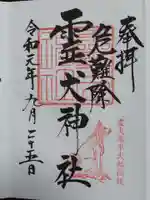 奉拝
危難除
霊犬神社
令和元年九月二十五日